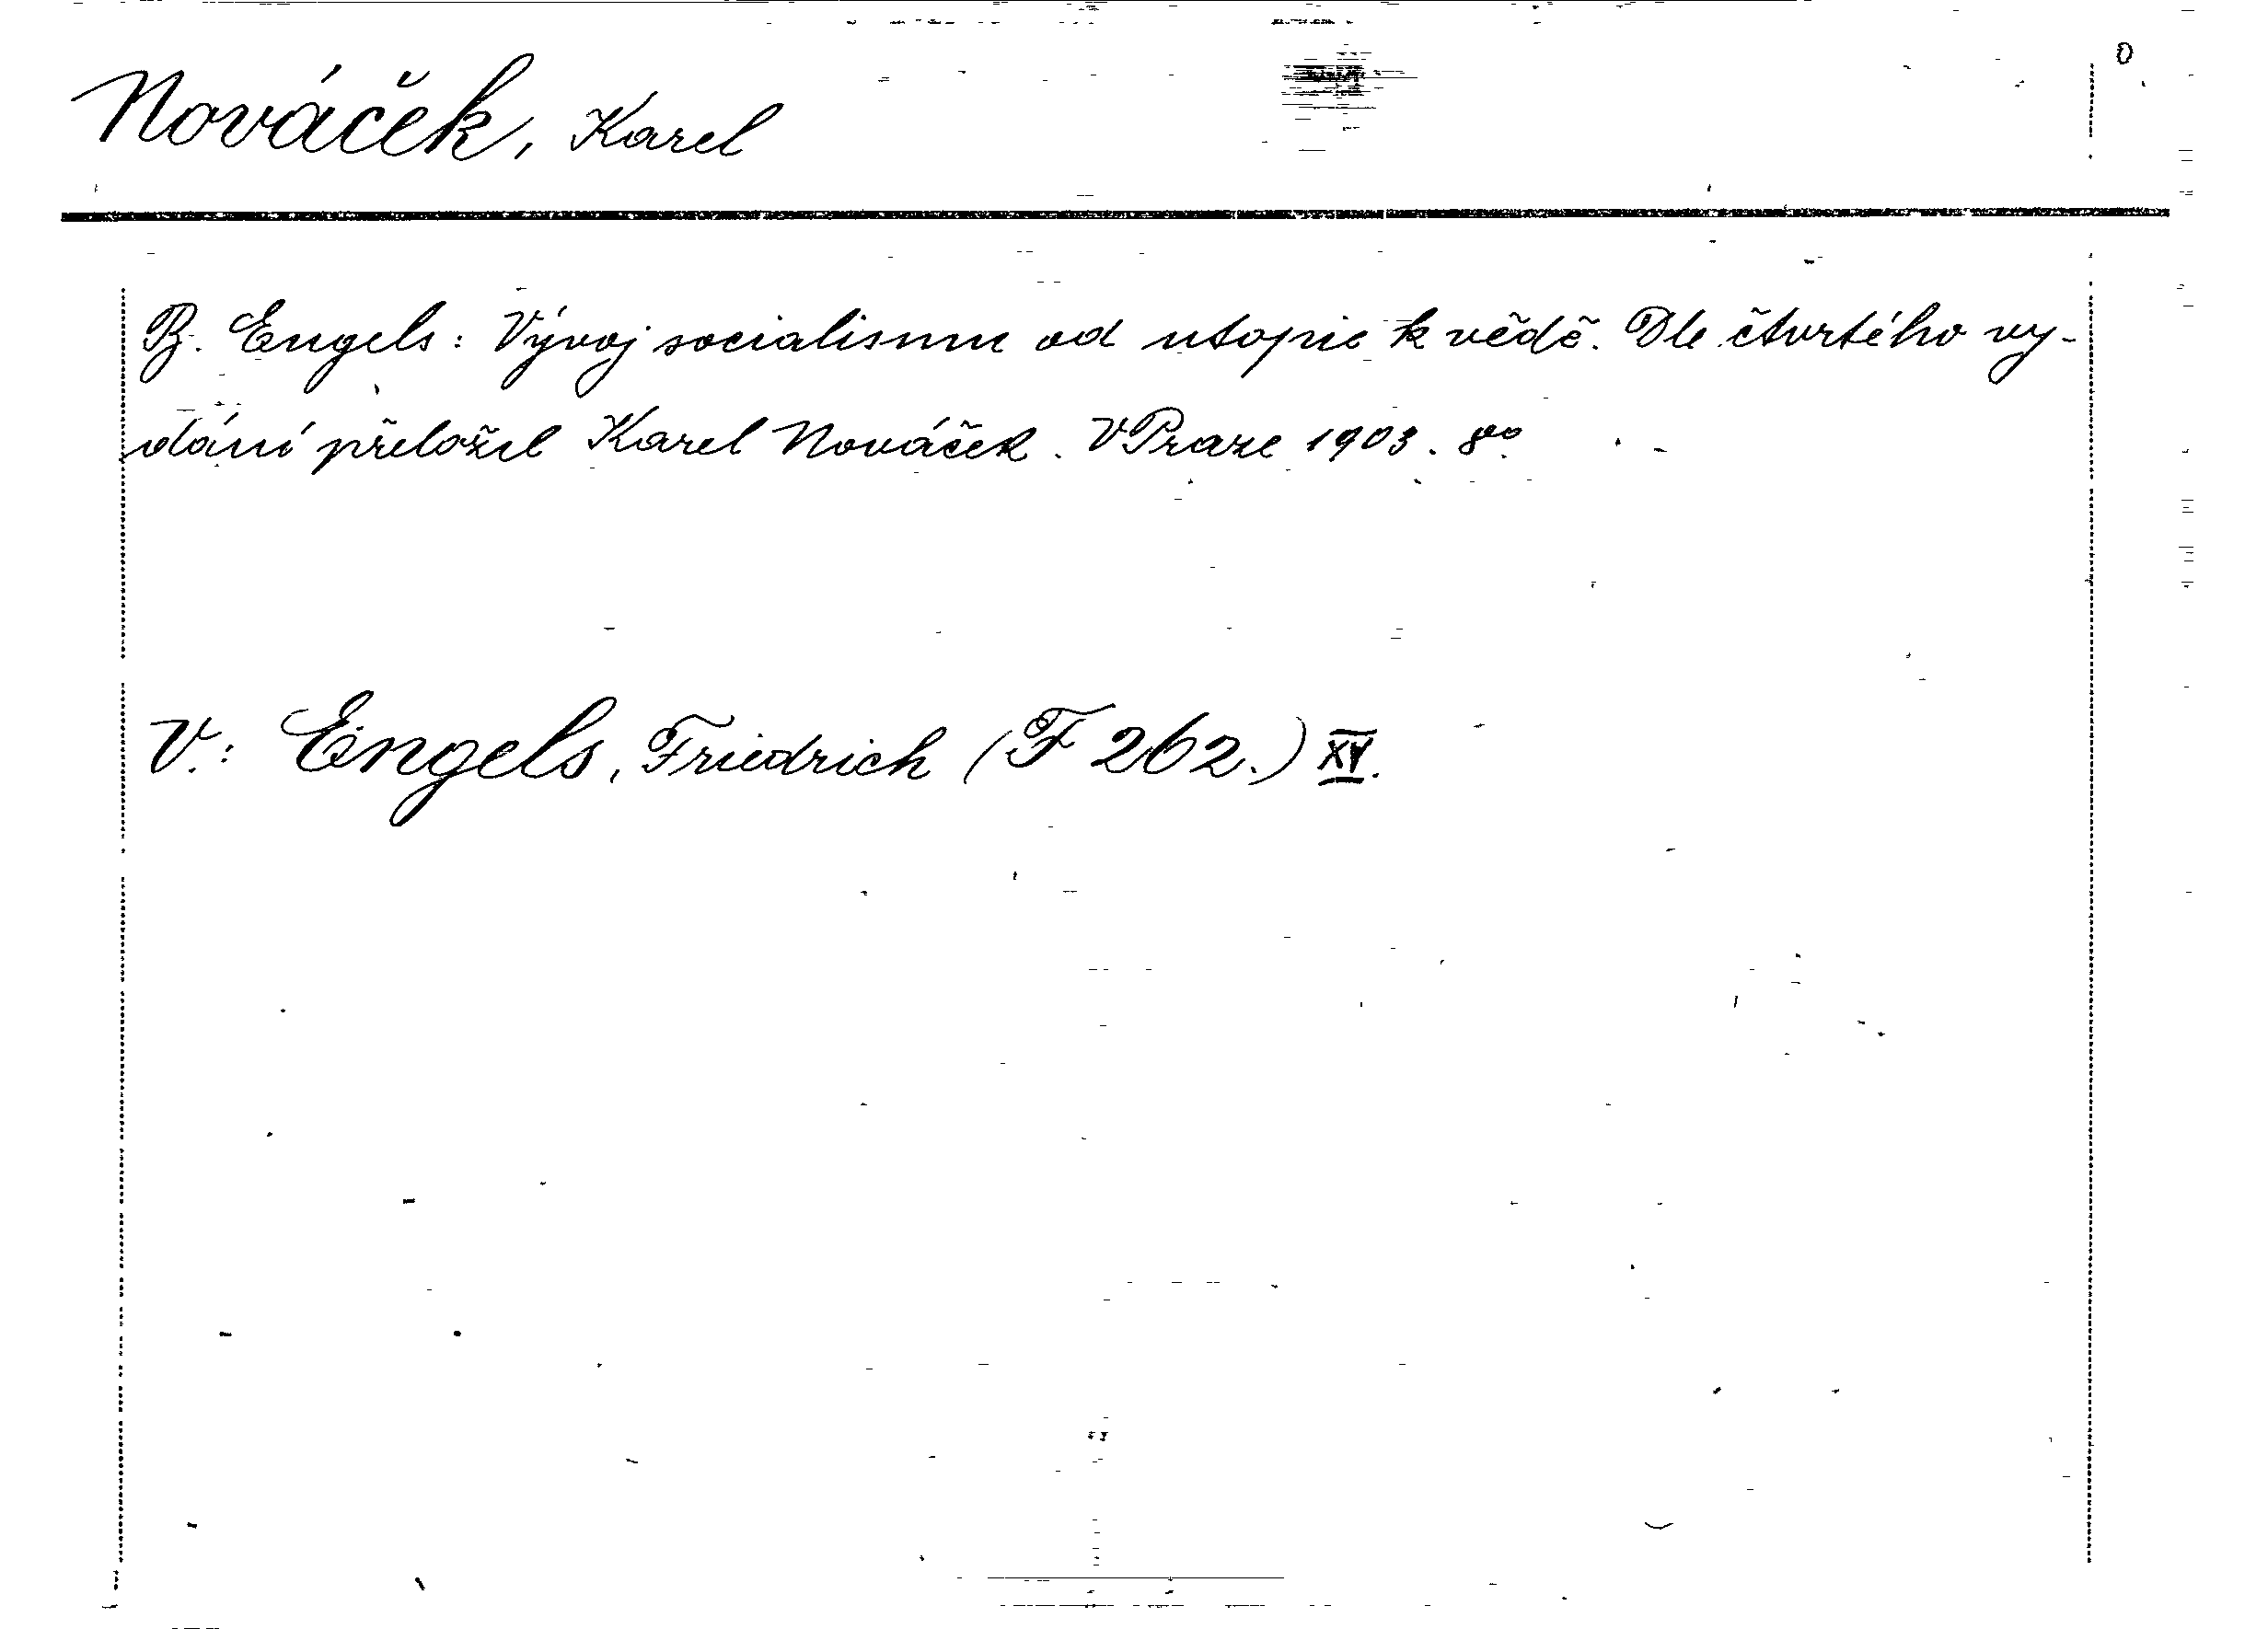 Nováček, Karel
B. Engels: Vývoj socialismu od utopie k vědě. Dle čtvrtého vy-
dání přeložil Karel Nováček. V Praze 1903. 8°.
V.: Engels, Friedrich (F 262.) XV.